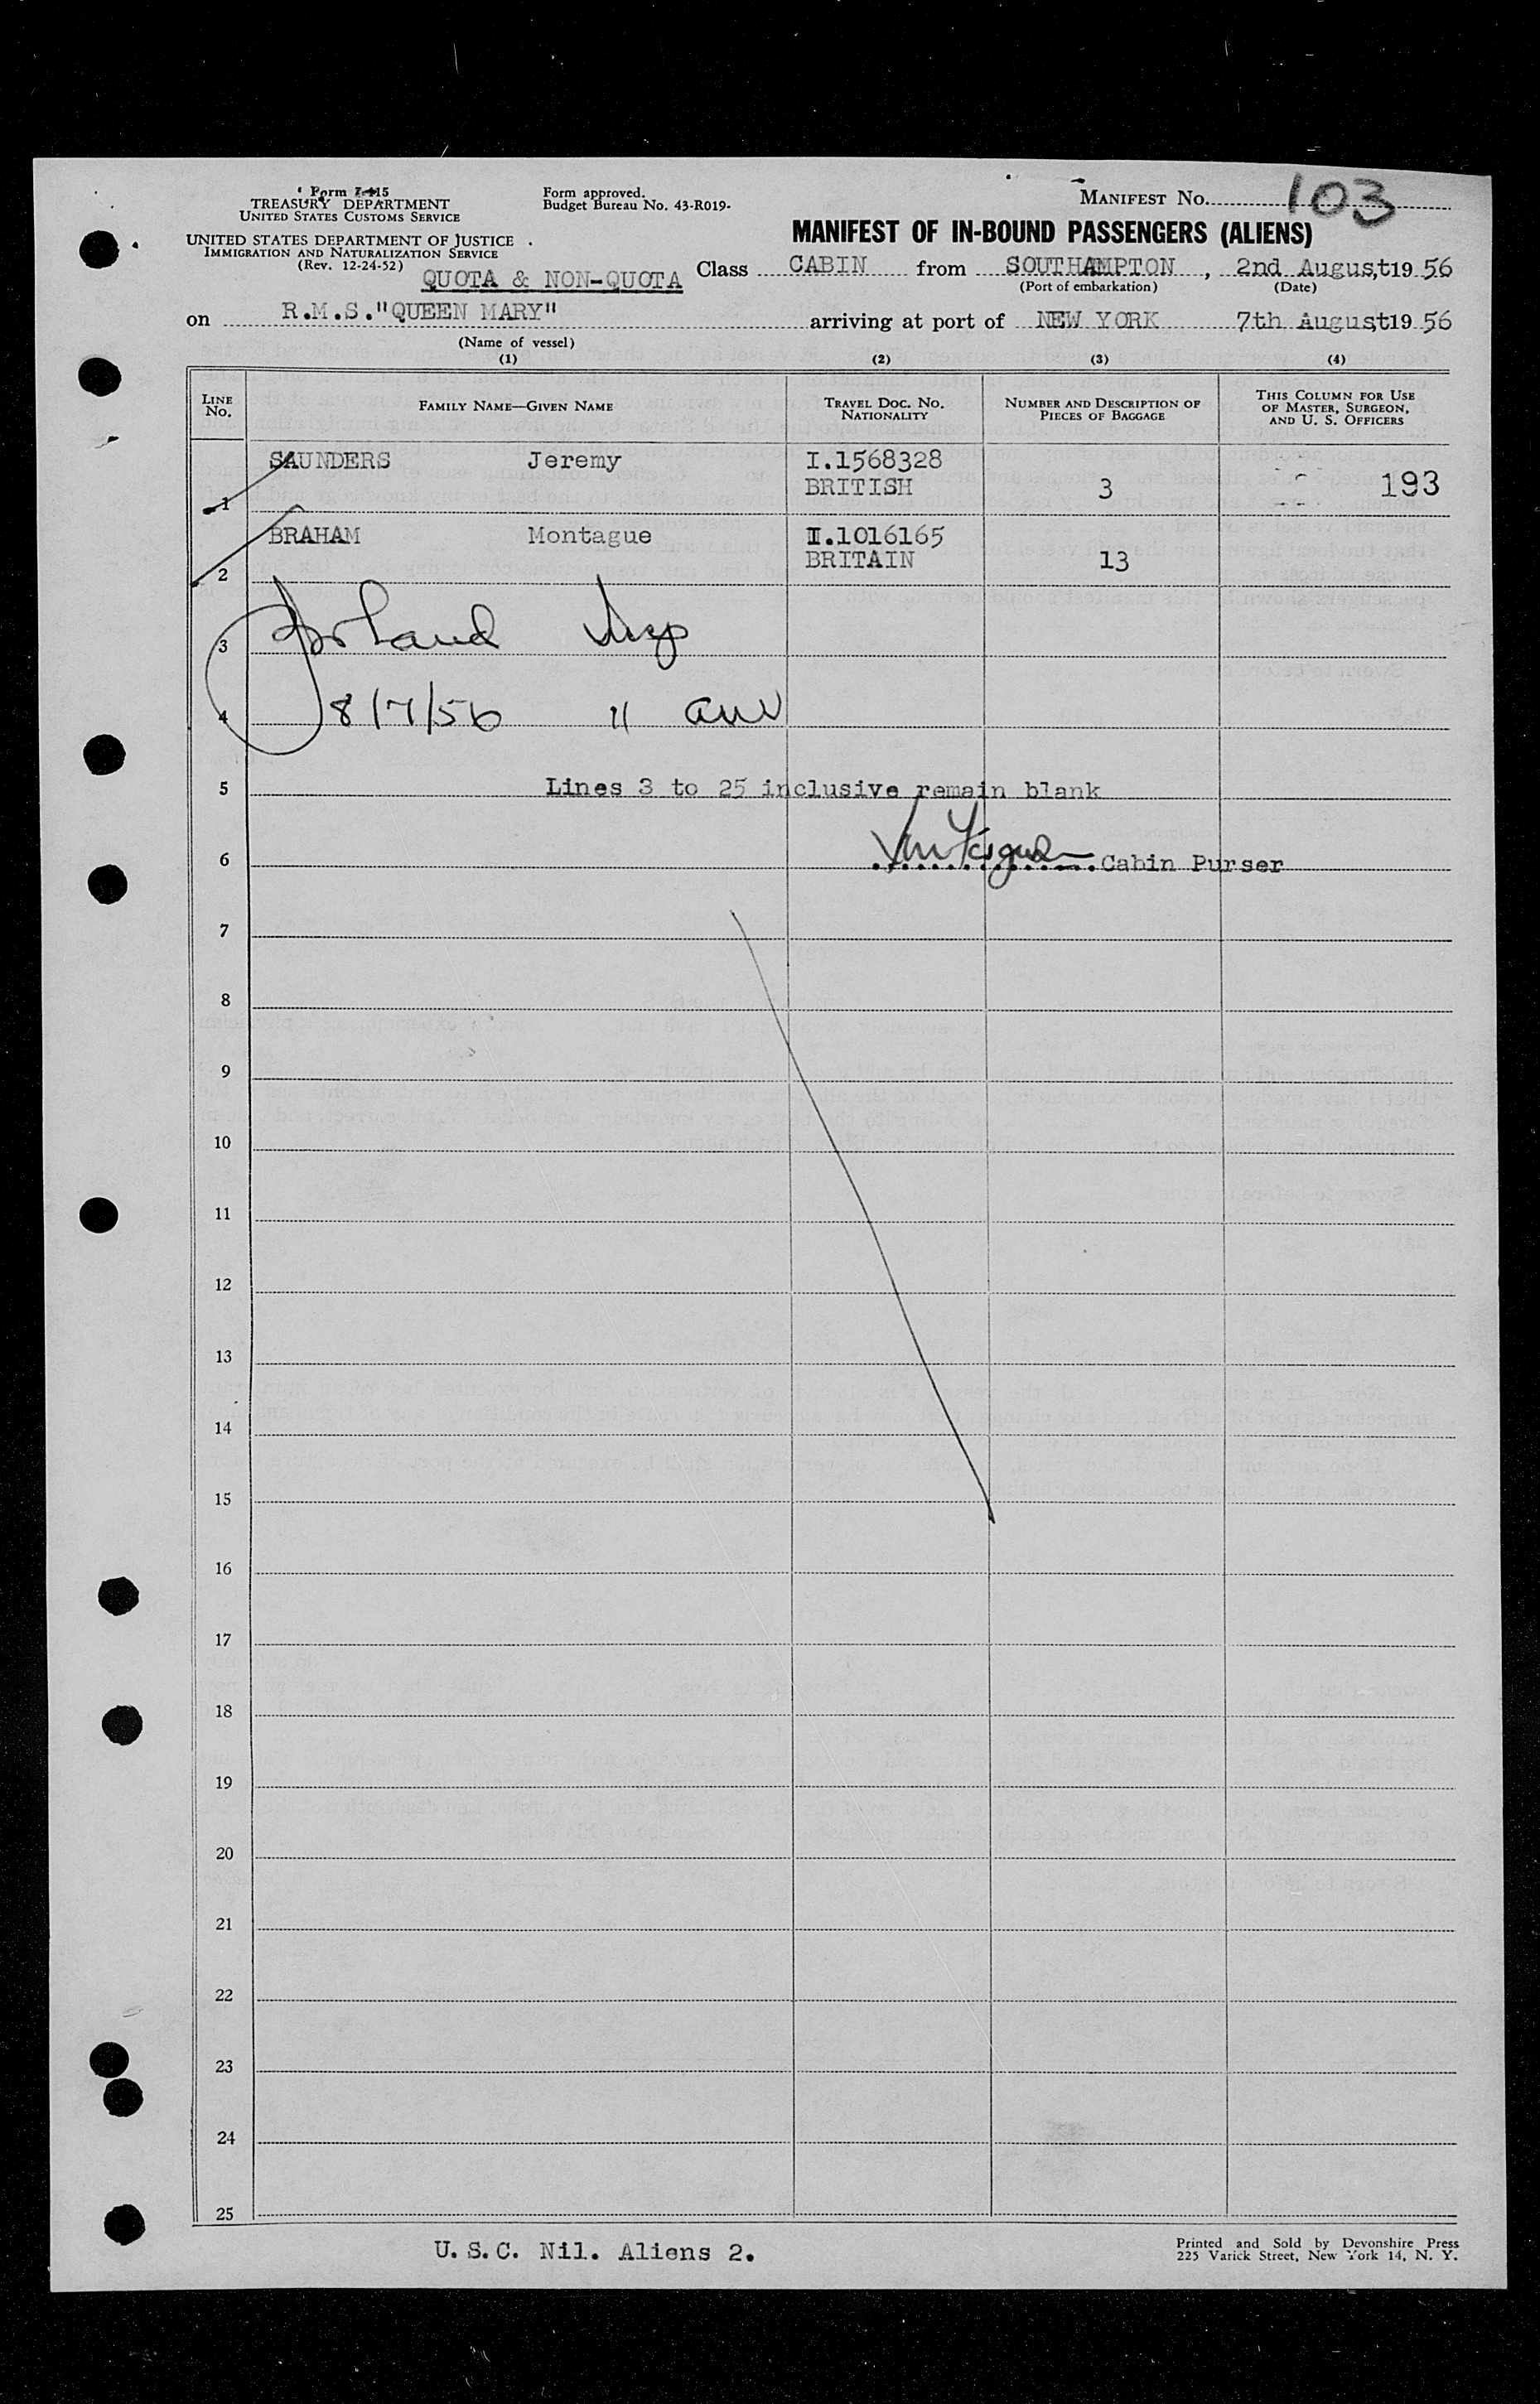 Form I-415
TREASURY DEPARTMENT
UNITED STATES CUSTOMS SERVICE
UNITED STATES DEPARTMENT OF JUSTICE
IMMIGRATION AND NATURALIZATION SERVICE
(Rev. 12-24-52)
Form approved.
Budget Bureau No. 43-R019-
MANIFEST No. 103
MANIFEST OF IN-BOUND PASSENGERS (ALIENS)
QUOTA & NON-QUOTA Class CABIN from SOUTHAMPTON, 2nd August, 1956
(Port of embarkation) (Date)
on R.M.S."QUEEN MARY" arriving at port of NEW YORK 7th August, 1956
(Name of vessel)
(1) (2) (3) (4)
LINE No. FAMILY NAME—GIVEN NAME TRAVEL DOC. No. NATIONALITY NUMBER AND DESCRIPTION OF PIECES OF BAGGAGE THIS COLUMN FOR USE OF MASTER, SURGEON, AND U. S. OFFICERS
SAUNDERS Jeremy I.1568328
1 BRITISH 3 193
BRAHAM Montague II.1016165
2 BRITAIN 13
3
4 8/7/56
5 Lines 3 to 25 inclusive remain blank
6 Cabin Purser
7
8
9
10
11
12
13
14
15
16
17
18
19
20
21
22
23
24
25
U.S.C. Nil. Aliens 2.
Printed and Sold by Devonshire Press
225 Varick Street, New York 14, N. Y.